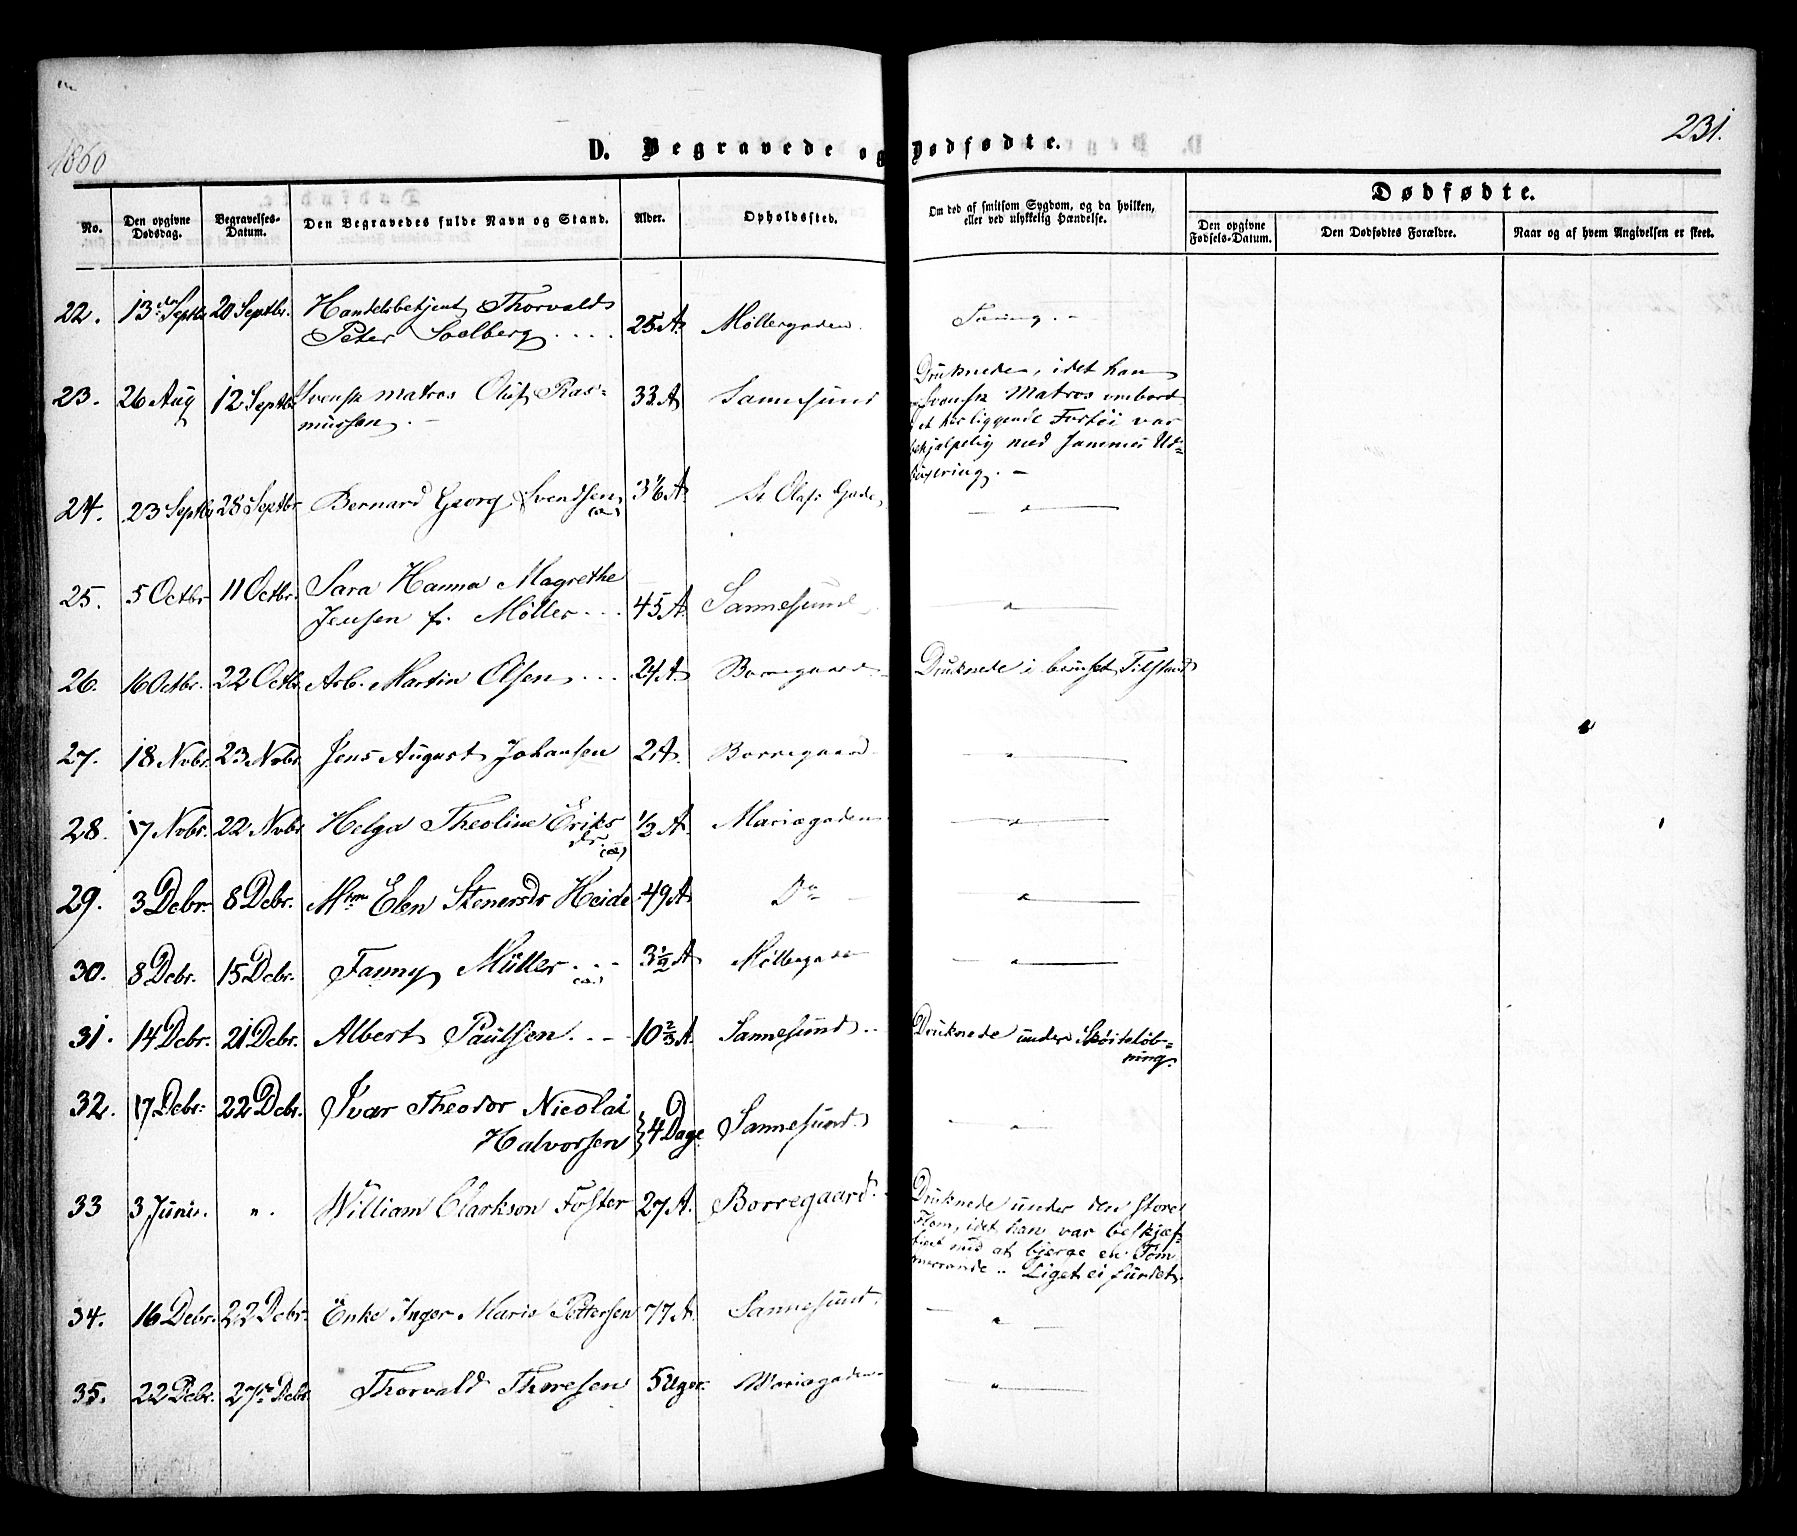 1860
231.
D. Begravede og Dødfødte.
No.
Den opgivne Dødsdag.
Begravelses-Datum.
Den Begravedes fulde Navn og Stand.
Alder.
Opholdssted.
Om død af smitsom Sygdom, og da hvilken,
eller ved ulykkelig Hændelse.
Dødfødte.
Den opgivne Fødsels-Datum.
Den Dødfødtes Forældre.
Naar og af hvem Angivelsen er skeet.
22. 13de Septbr 20 Septbr. Handelsbetjent Thorvald
Peter Soelberg .... 25 A. Møllergaden.
23. 26 Aug 12 Septbr Svensk matros Oluf Ras-
mussen. 33 A Sannesund
Druknede, idet han
Svensk Matros ombord
et her liggende Fartøi var
behjelpelig med sammes Ud-
bøxering.
24. 23 Septbr 28 Septbr Bernard Georg Svendsen 3 1/6 A. St Olafs Gade "
25. 5 Octbr 11 Octbr. Sara Hanna Magrethe
Jensen f. Møller ... 45 A. Sannesund "
26. 16 Octbr. 22 Octbr. Arb. Martin Olsen ... 24 A. Borregaard Druknede i beruset Tilstand
27. 18 Novbr. 23 Novbr. Jens August Johansen 2 A. Borregaard "
28. 17 Novbr. 22 Novbr Helga Theoline Eriks
dr. 1/3 A. Mariegaden "
29. 3 Debr. 8 Debr. Elen Stenersdr Heide 49 A Do "
30. 8 Debr. 15 Debr. Fanny Müller ... 3 1/2 A "
31. 14 Debr. 21 Debr. Albert Paulsen ... 10 2/3 A. Sannesund Druknede under Skøiteløb-
ning.
32. 17 Debr. 22 Debr. Ivar Theodor Nicolai
Halvorsen } 4 Dage Sannesund "
33 3 Juni. ". William Clarkson Foster 27 A. Borregaard.
Druknede under den store
Flom, idet han var beskjæf-
tiget med at bjerge en Tøm
merrende. Liget ei fundet.
34. 16 Debr. 22 Debr. Enke Inger Maria Pettersen 77 A. Sannesund. "
35. 22 Debr. 27de Debr Thorvald Thoresen 5 Uger. Mariegaden "